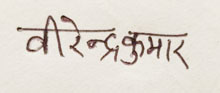 वीरेन्द्रकुमार